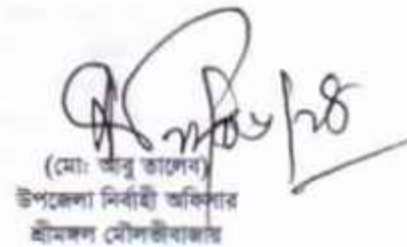 (মোঃ আবু তালেব)
উপজেলা নির্বাহী অফিসার
শ্রীমঙ্গল মৌলভীবাজার